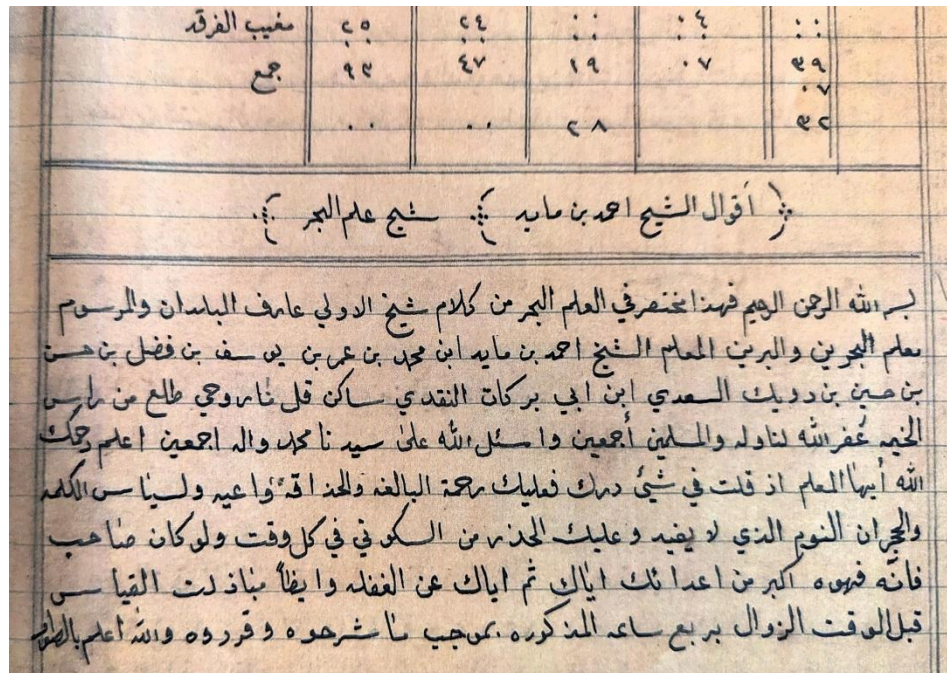 مغيب الفرقد ٢٥ ٢٤ ٠٠ ٠٤ ٠٠
جمع ٩٣ ٤٧ ١٩ ٠٧ ٣٩
٠٧
٠٠ ٠٠ ٢٨ ٣٢
أقوال الشيخ احمد بن مايد شيخ علم البحر
بسم الله الرحمن الرحيم فهذا مختصر في العلم البحر من كلام شيخ الاولي عارف البلدان والمرسوم
معلم البحرين والبرين المعلم الشيخ احمد بن مايد ابن محمد بن عمر بن يوسف بن فضل بن حسن
بن حسين بن دويك السعدي ابن ابي بركات النقدي ساكن طالع من راس
الخيمه غفر الله لنا وله والمسلمين أجمعين واسئل الله على سيدنا محمد واله اجمعين اعلم رحمك
الله أيها المعلم اذ قلت في شئ درك فعليك رحمة البالغه والحذاقة الكلمه
والهجران النوم الذي لا يفيد وعليك الحذر من السكوني في كل وقت ولو كان صاحب
فانّه فهوه اكبر من اعدائك اياك ثم اياك عن الغفله وايظاً القياس
قبل الوقت الزوال بربع ساعه المذكوره بموجب ما شرحوه وقرروه والله اعلم بالصواب